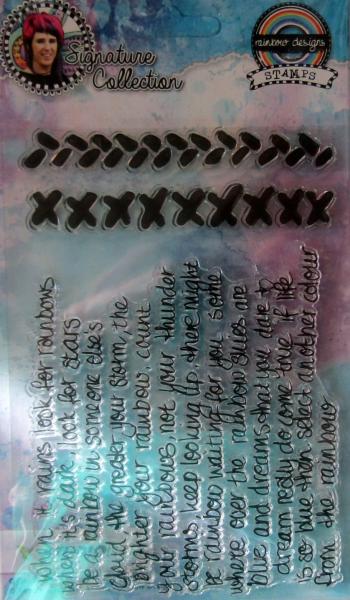 Signature
Collection
rainbow designs
STAMPS
when it rains look for rainbows
when it's dark look for stars
be a rainbow in someone else's
cloud the greater your storm, the
brighter your rainbow. count
your rainbows, not your thunder
storms. keep looking up, there might
be rainbow waiting for you some
where over the rainbow skies are
blue and dreams that you dare to
dream really do come true if life
is so blue than select another colour
from the rainbow